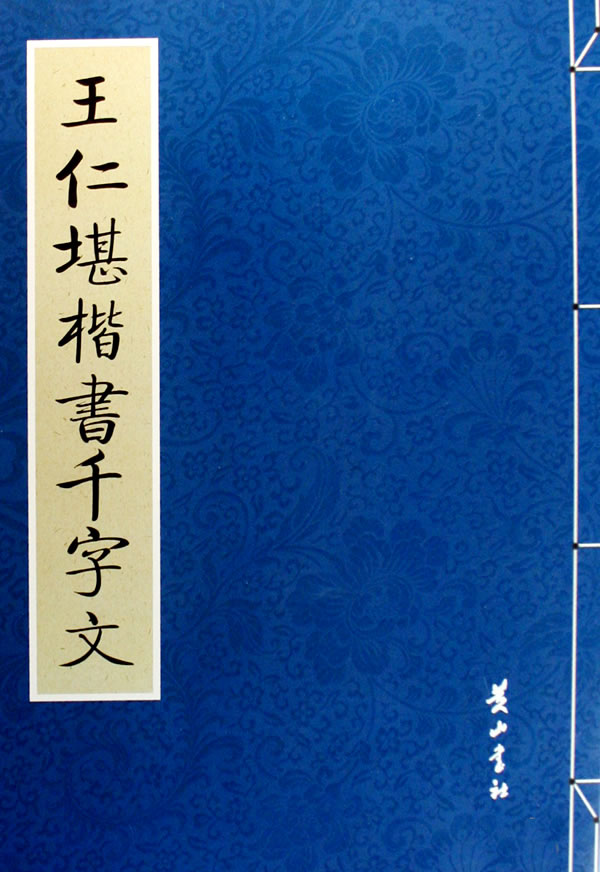 王仁堪楷書千字文
黄山书社